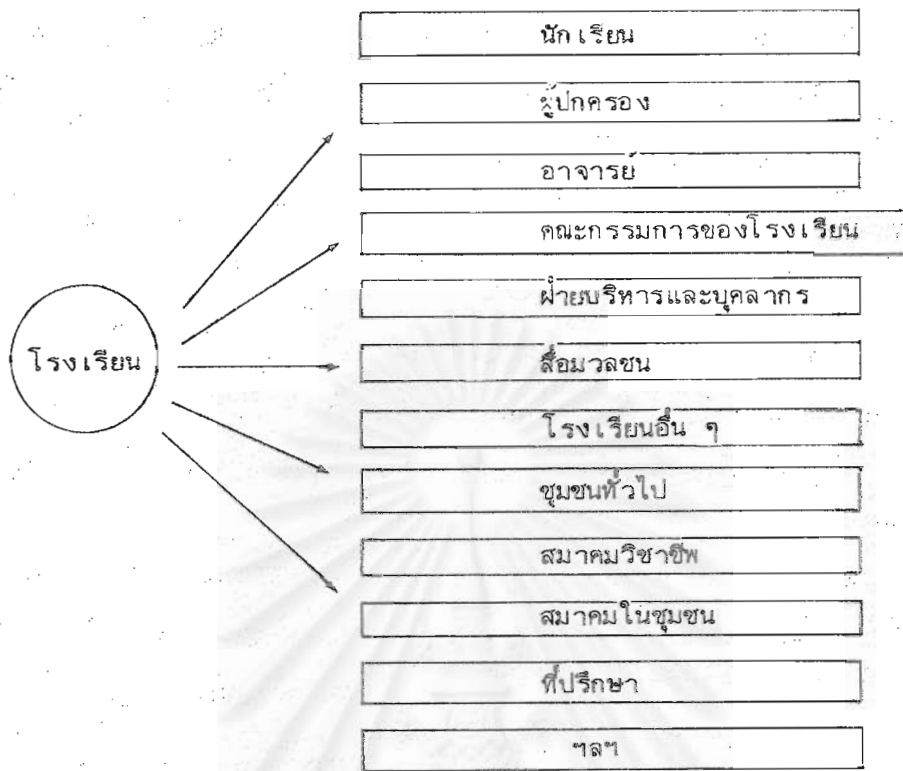 นักเรียน
ผู้ปกครอง
อาจารย์
คณะกรรมการของโรงเรียน
ฝ่ายบริหารและบุคลากร
โรงเรียน
สื่อมวลชน
โรงเรียนอื่น ๆ
ชุมชนทั่วไป
สมาคมวิชาชีพ
สมาคมในชุมชน
ที่ปรึกษา
ฯลฯ